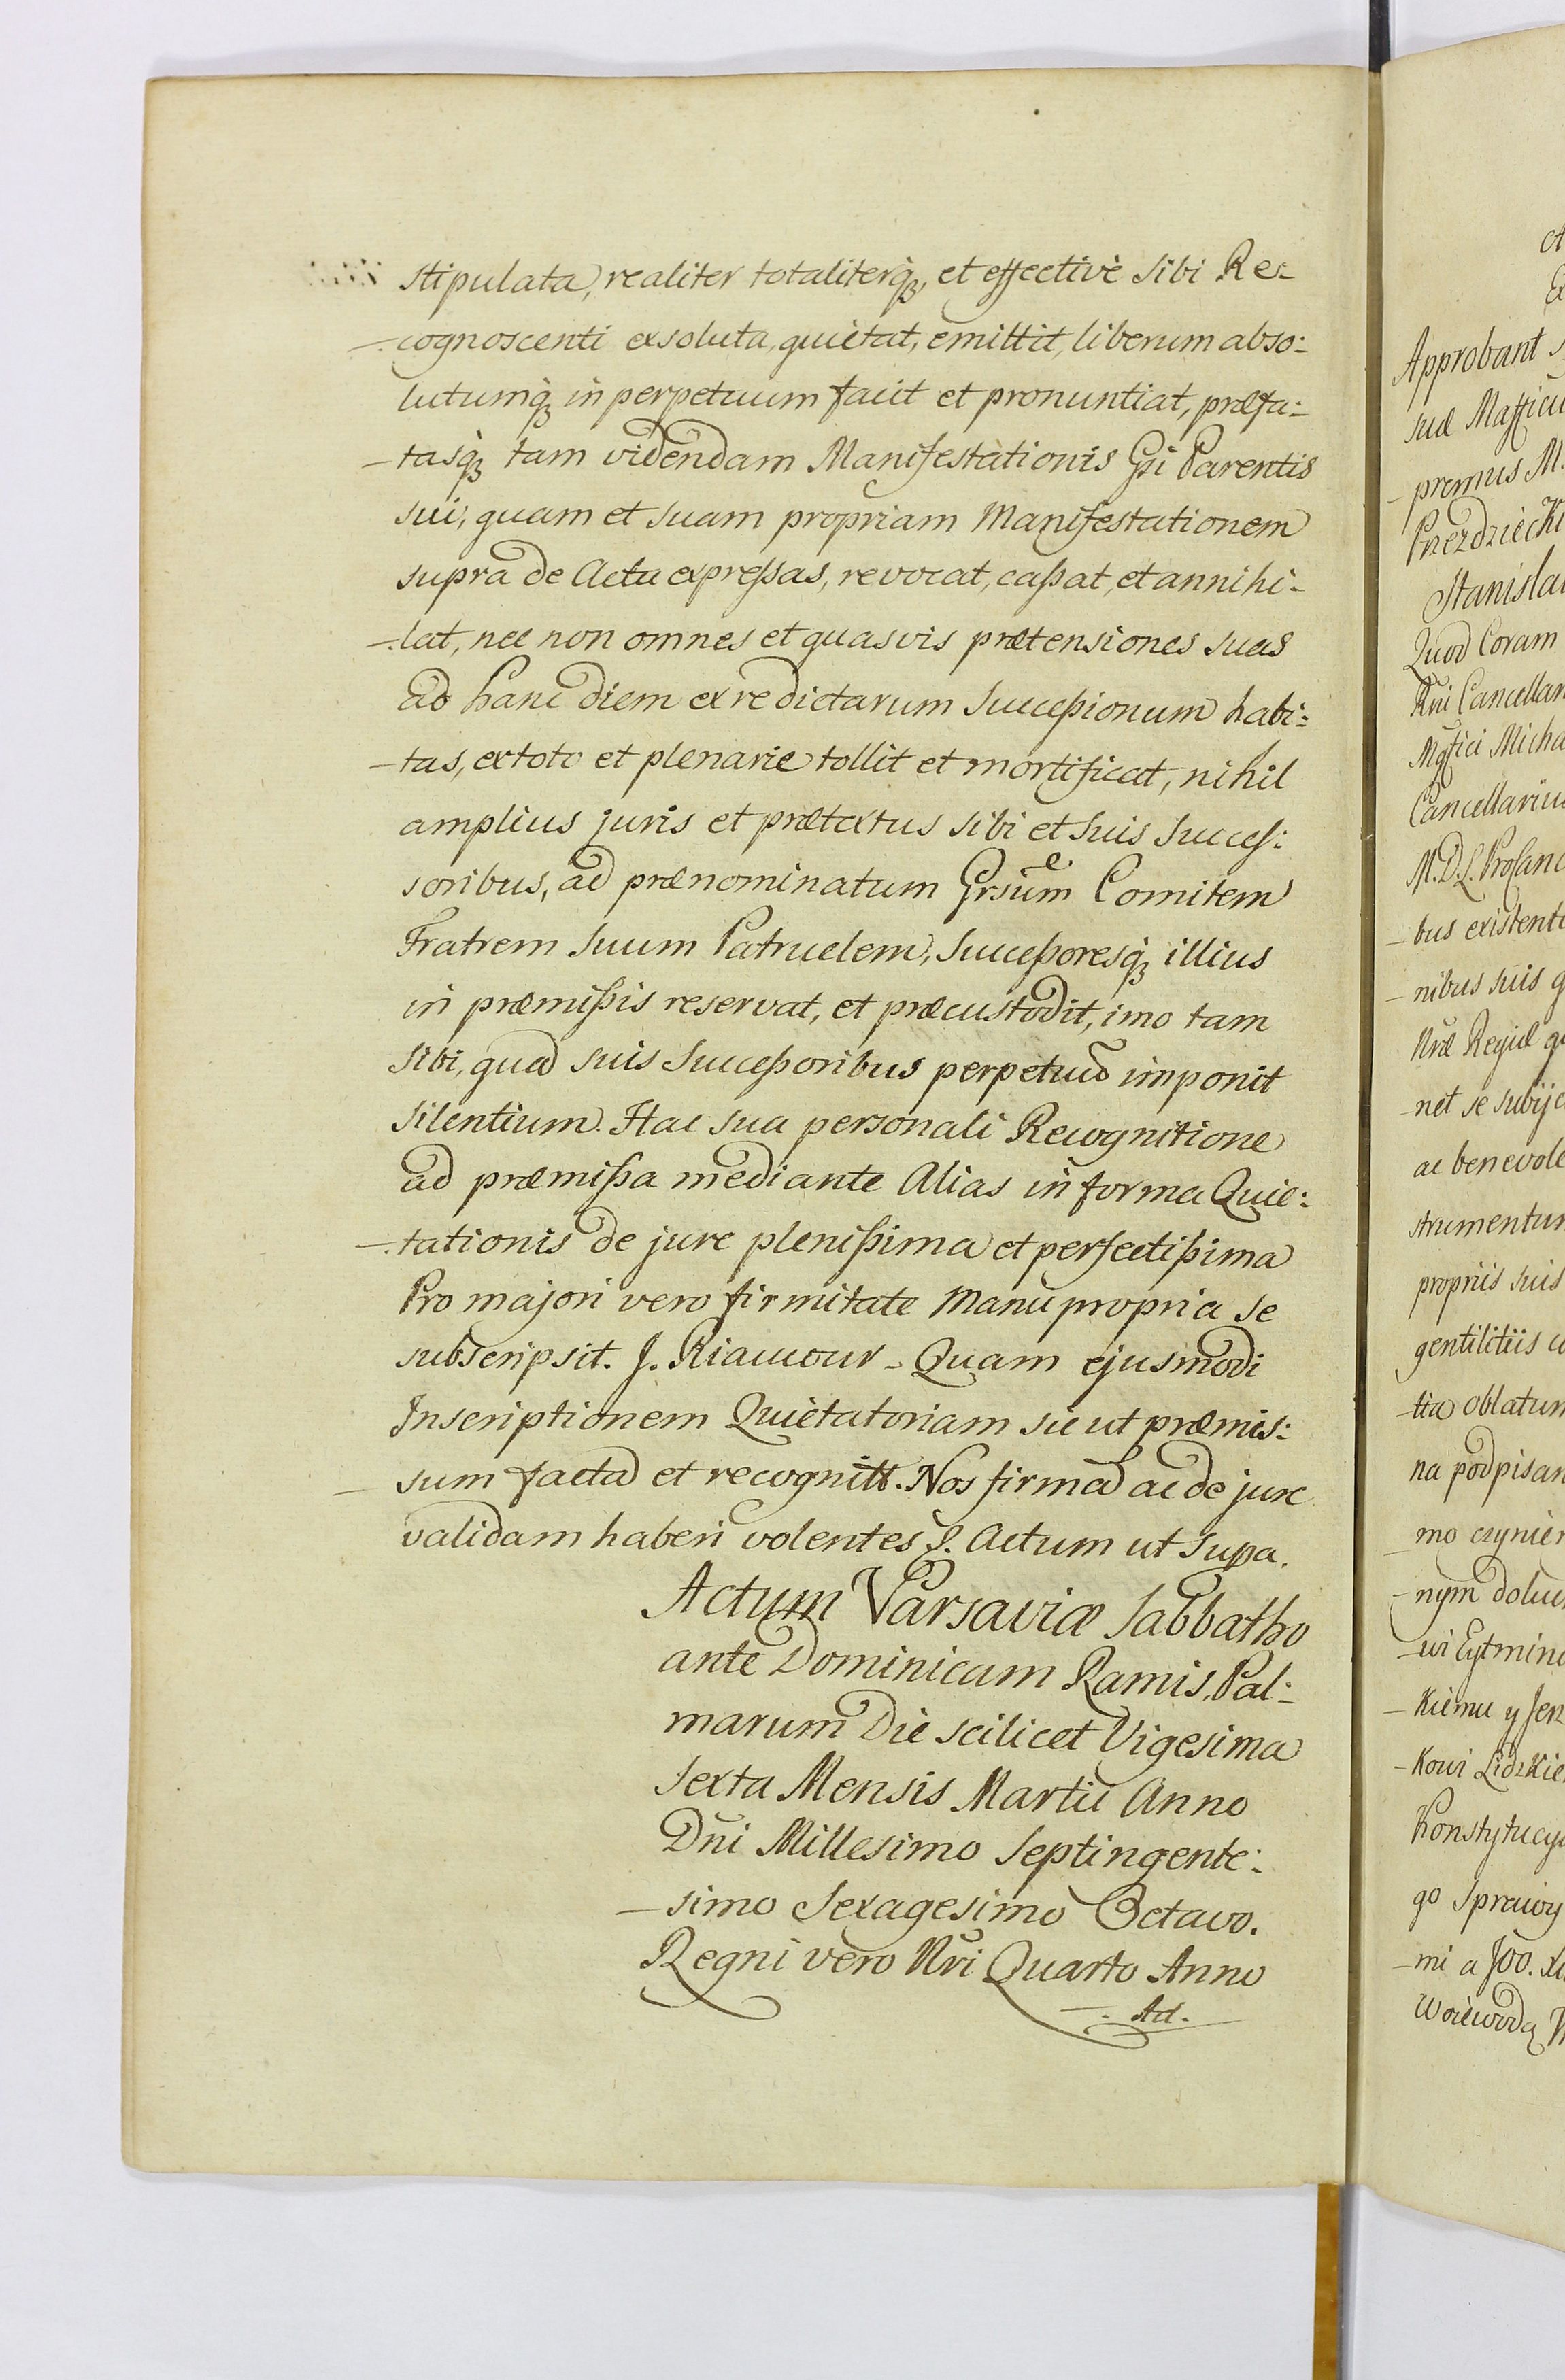 stipulata, realiter totaliterq₃, et effective sibi Re-
-cognoscenti exsoluta, quietat, emittit, liberum abso:
lutumq₃ in perpetuum facit et pronuntiat, præfa:
-tasq₃ tam videndam Manifestationis Gsi Parentis
sui, quam et suam propriam Manifestationem
supra de Actu expreßas, revocat, caßat, et annihi-
-lat, nec non omnes et quasvis prætensiones suas
ad hanc diem ex re dictarum Succeßionum habi:
-tas, ex toto et plenarie tollit et mortificat, nihil
amplius juris et prætextus sibi et suis Succes:
soribus, ad prænominatum Grsum Comitem
Fratrem suum Patruelem, Succeßoresq₃ illius
in præmißis reservat, et præcustodit, imo tam
sibi, quad suis Succeßoribus perpetuo imponit
silentium. Hac sua personali Recognitione
ad præmißa mediante Alias in forma Quie:
-tationis de jure plenißima et perfectißima
Pro majori vero firmitate Manu propria se
subscripsit. J. Riaucour - Quam ejusmodi
Inscriptionem Quietatoriam sic ut præmis:
sum facta et recognitt. Nos firma ac de jure
validam haberi volentes S. Actum ut supa.
Actum Varsaviæ Sabbatho
ante Dominicam Ramis. Pal:
marum Die scilicet Vigesima
sexta Mensis Martii Anno
Dni Millesimo Septingente:
-simo Sexagesimo Octavo.
Regni vero Nri Quarto Anno
Ad.
Approbant
suæ
premus M.
Przezdziecki
Stanisla
Quod Coram
Rni Cancellar
Mgfici Micha
Cancellariu
M.D.L. ProCanc
-bus existenti
-nibus suis q
Nræ Regiæ q
-net se subijc
ac benevole
strumentum
propriis suis
gentilitiis
-tia oblatum
na podpisan
mo czynien
-nym
-wi Eytmino
-kiemu y Jerz
-kowi Lidzkie
Konstytucy
go Sprawy
-mi a Joo.
Woiewodą W